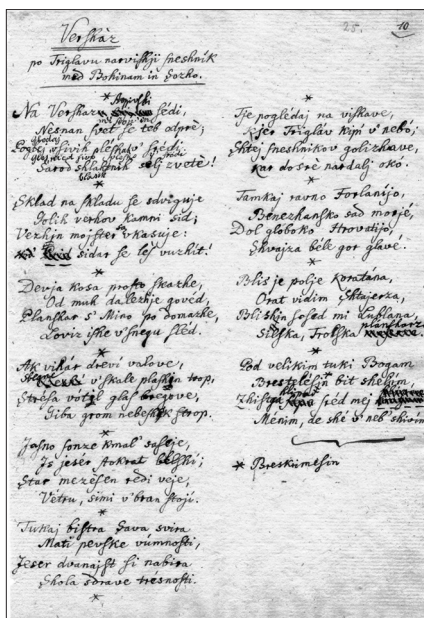 25.
10
Vershàz
po Triglavu narvishji sneshnik
med Bohinam in Sozho.
*
Na Vershazu
sédi,
Nesnan svet se teb odpre;
Glédej
sivih pleshov srédi
Sarod shlahtnih selj zvetè!
*
Sklad na skladu se sdviguje
Golih verhov kamni sid;
Vezhni mojster vkasuje:
sidar se les vuzhit!
*
Devja kosa prosto skazhe,
Od muh dalezhje govéd,
Planshar s'Mino po domazhe,
Loviz ishe v'snegu sléd.
*
Ak vihár dreví valove,
v'skale plashijn trop,
Strésa votel glas bregove,
Giba grom nebeshk strop.
*
Jasno sonze kmal saséje,
Is jeser
Star mezésen redi veje,
Vetru, simi v'bran stoji.
*
Tukaj bistra Sava svira
Mati pevske vúmnosti,
Jeser dvanajst si nabira
Shola sdrave trésnosti.
*
Tje poglédaj na vishave,
Kjer Triglàv kipi v'nebó;
Shtej sneshnikov golizhave,
Kar dosrè nardalj okó.
*
Tamkaj ravno Forlanijo,
Benezhansko sad morjé,
Dol globoko Hrovatijo,
Shvajza bele gor glave.
*
Blis je polje Koratana,
Orat vidim Shtajerza,
Blishijn sosed mi Lublana,
Silska, Trolska planharza
*
Pod velikim tuki Bogam
Breztelésin bit shelim,
sréd mej
Ménim, de shé v'neb' shivim
* Breskimtesin